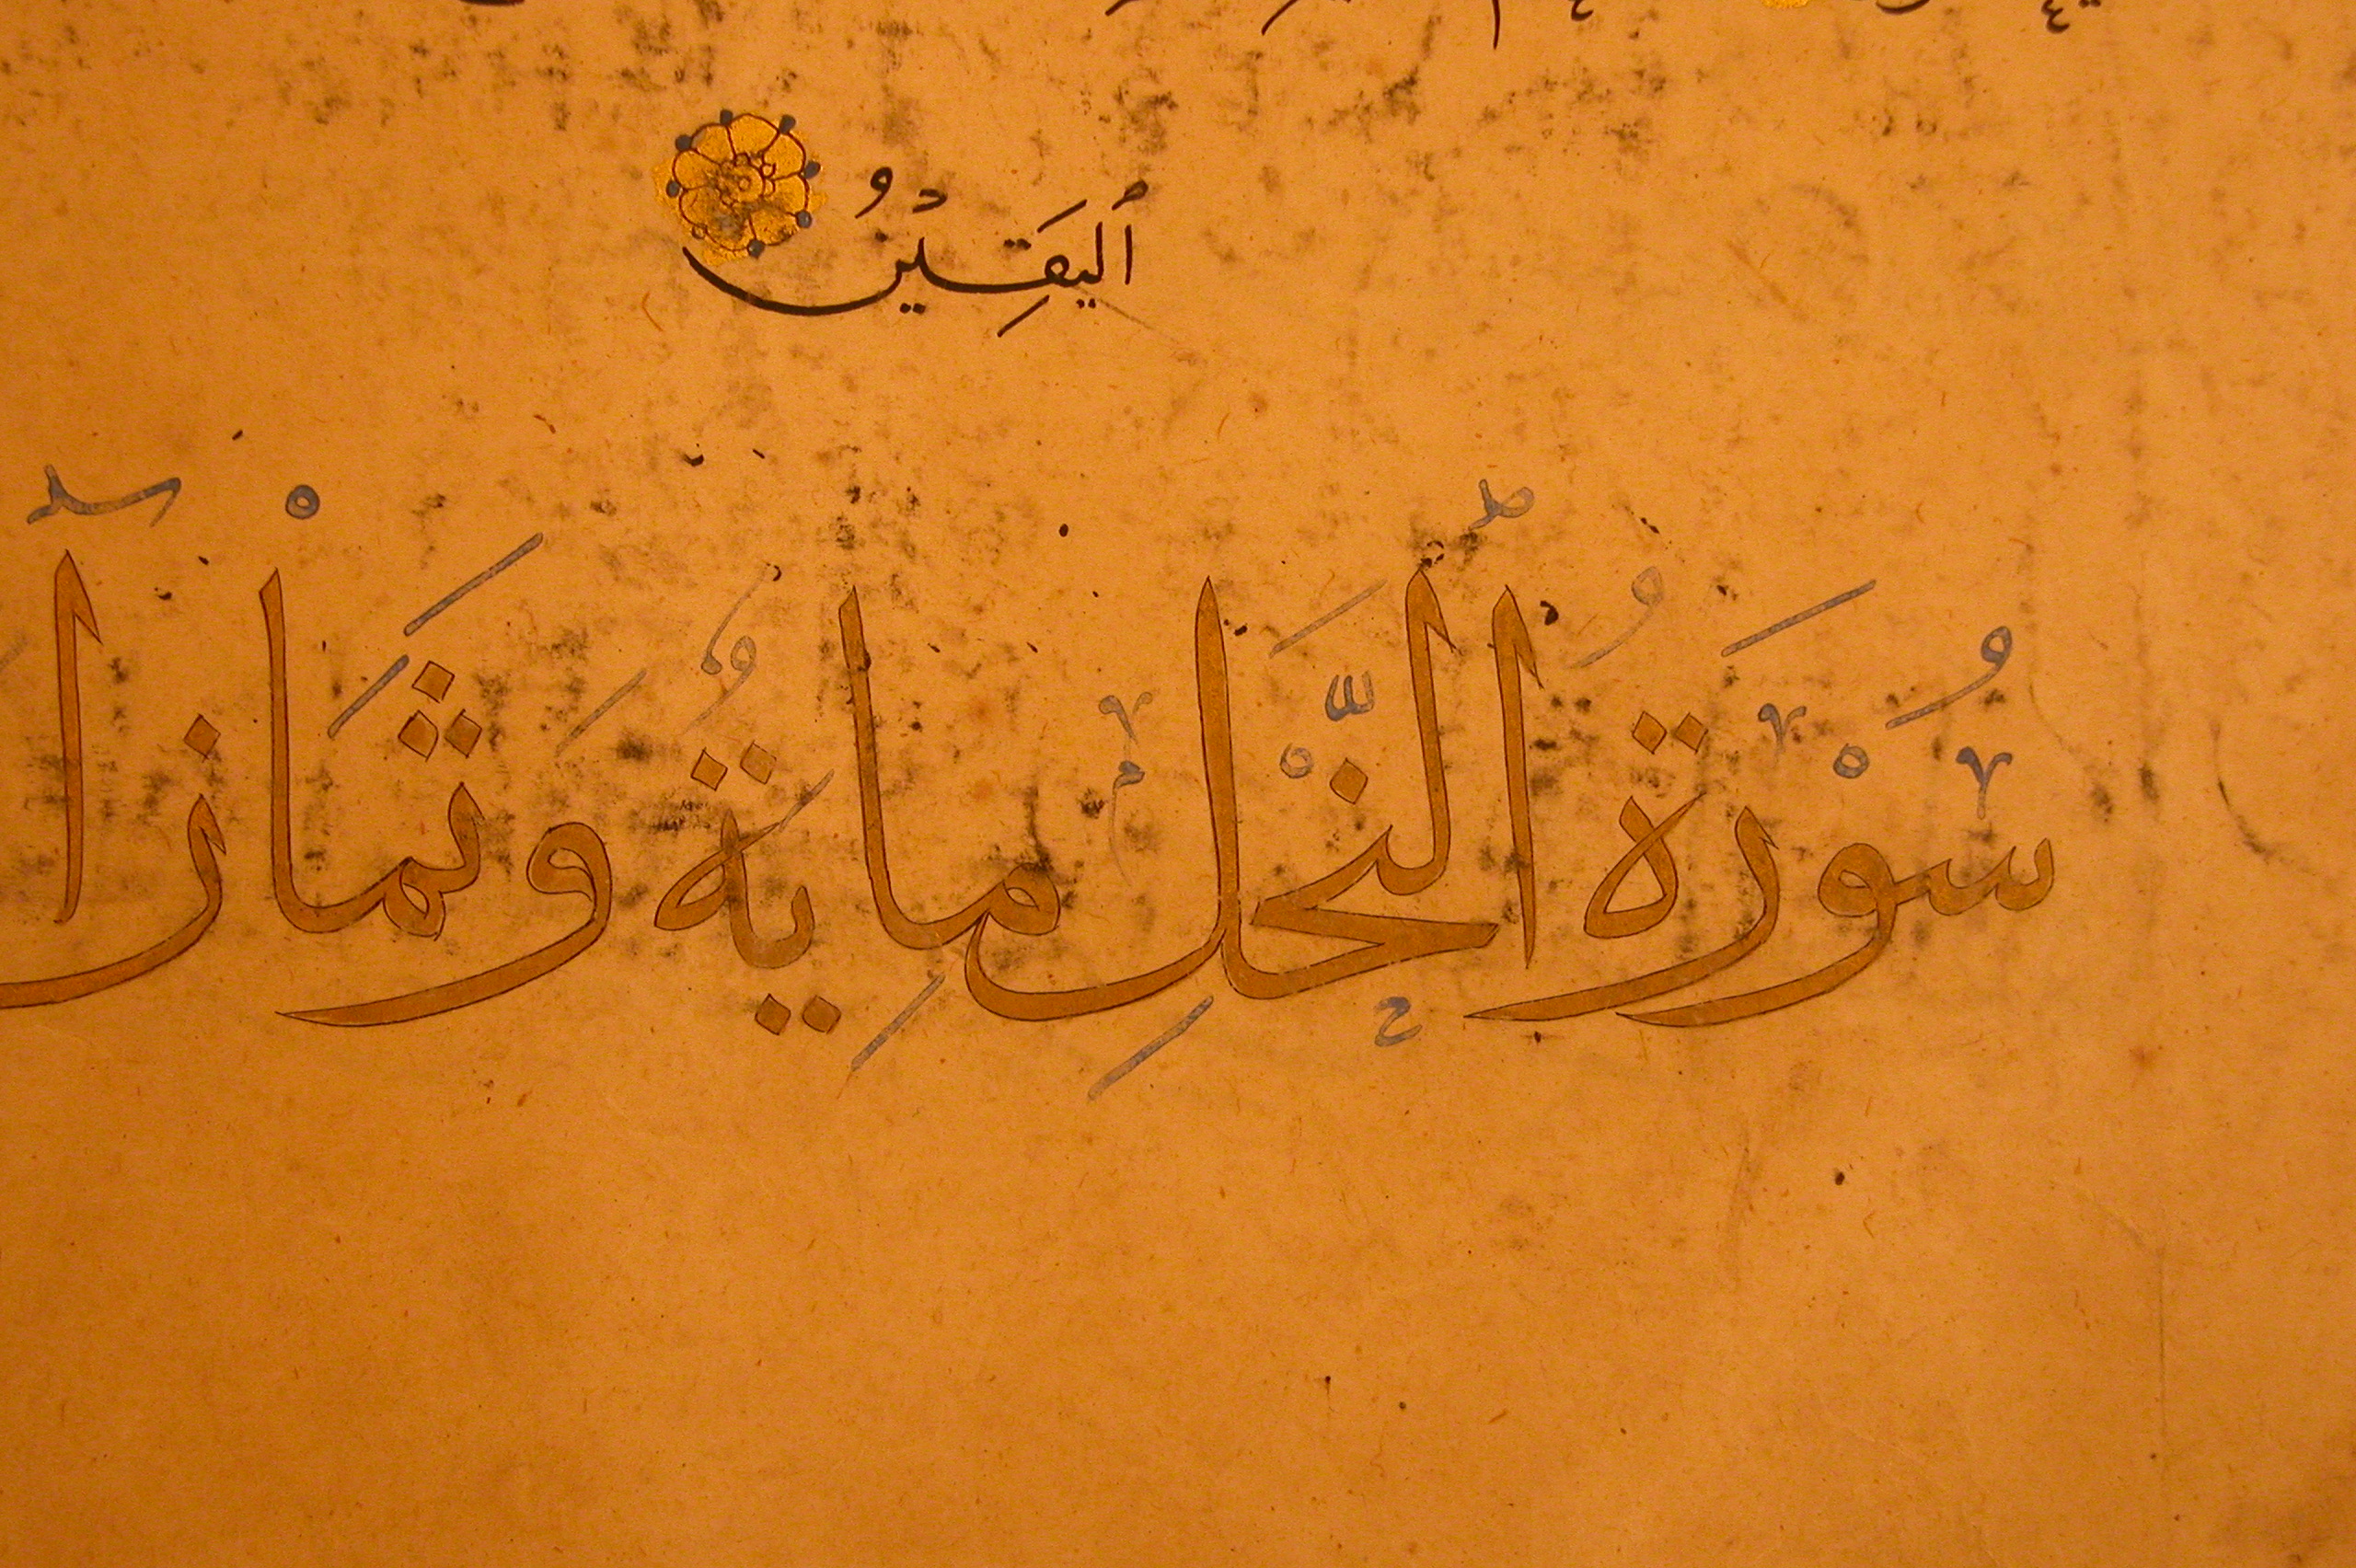 ٱلْيَقِينُ
سُوْرَةُ النَّحْلِ مِايَةٌ وَثَمَانٍ آ